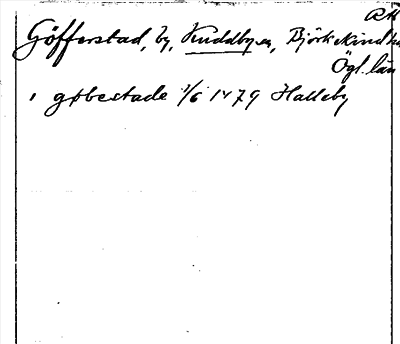 RA
Göfferstad, by, Kuddby sn, Björkekind hd
Ögl. län
, gøbestade 1/6 1479 Halleby